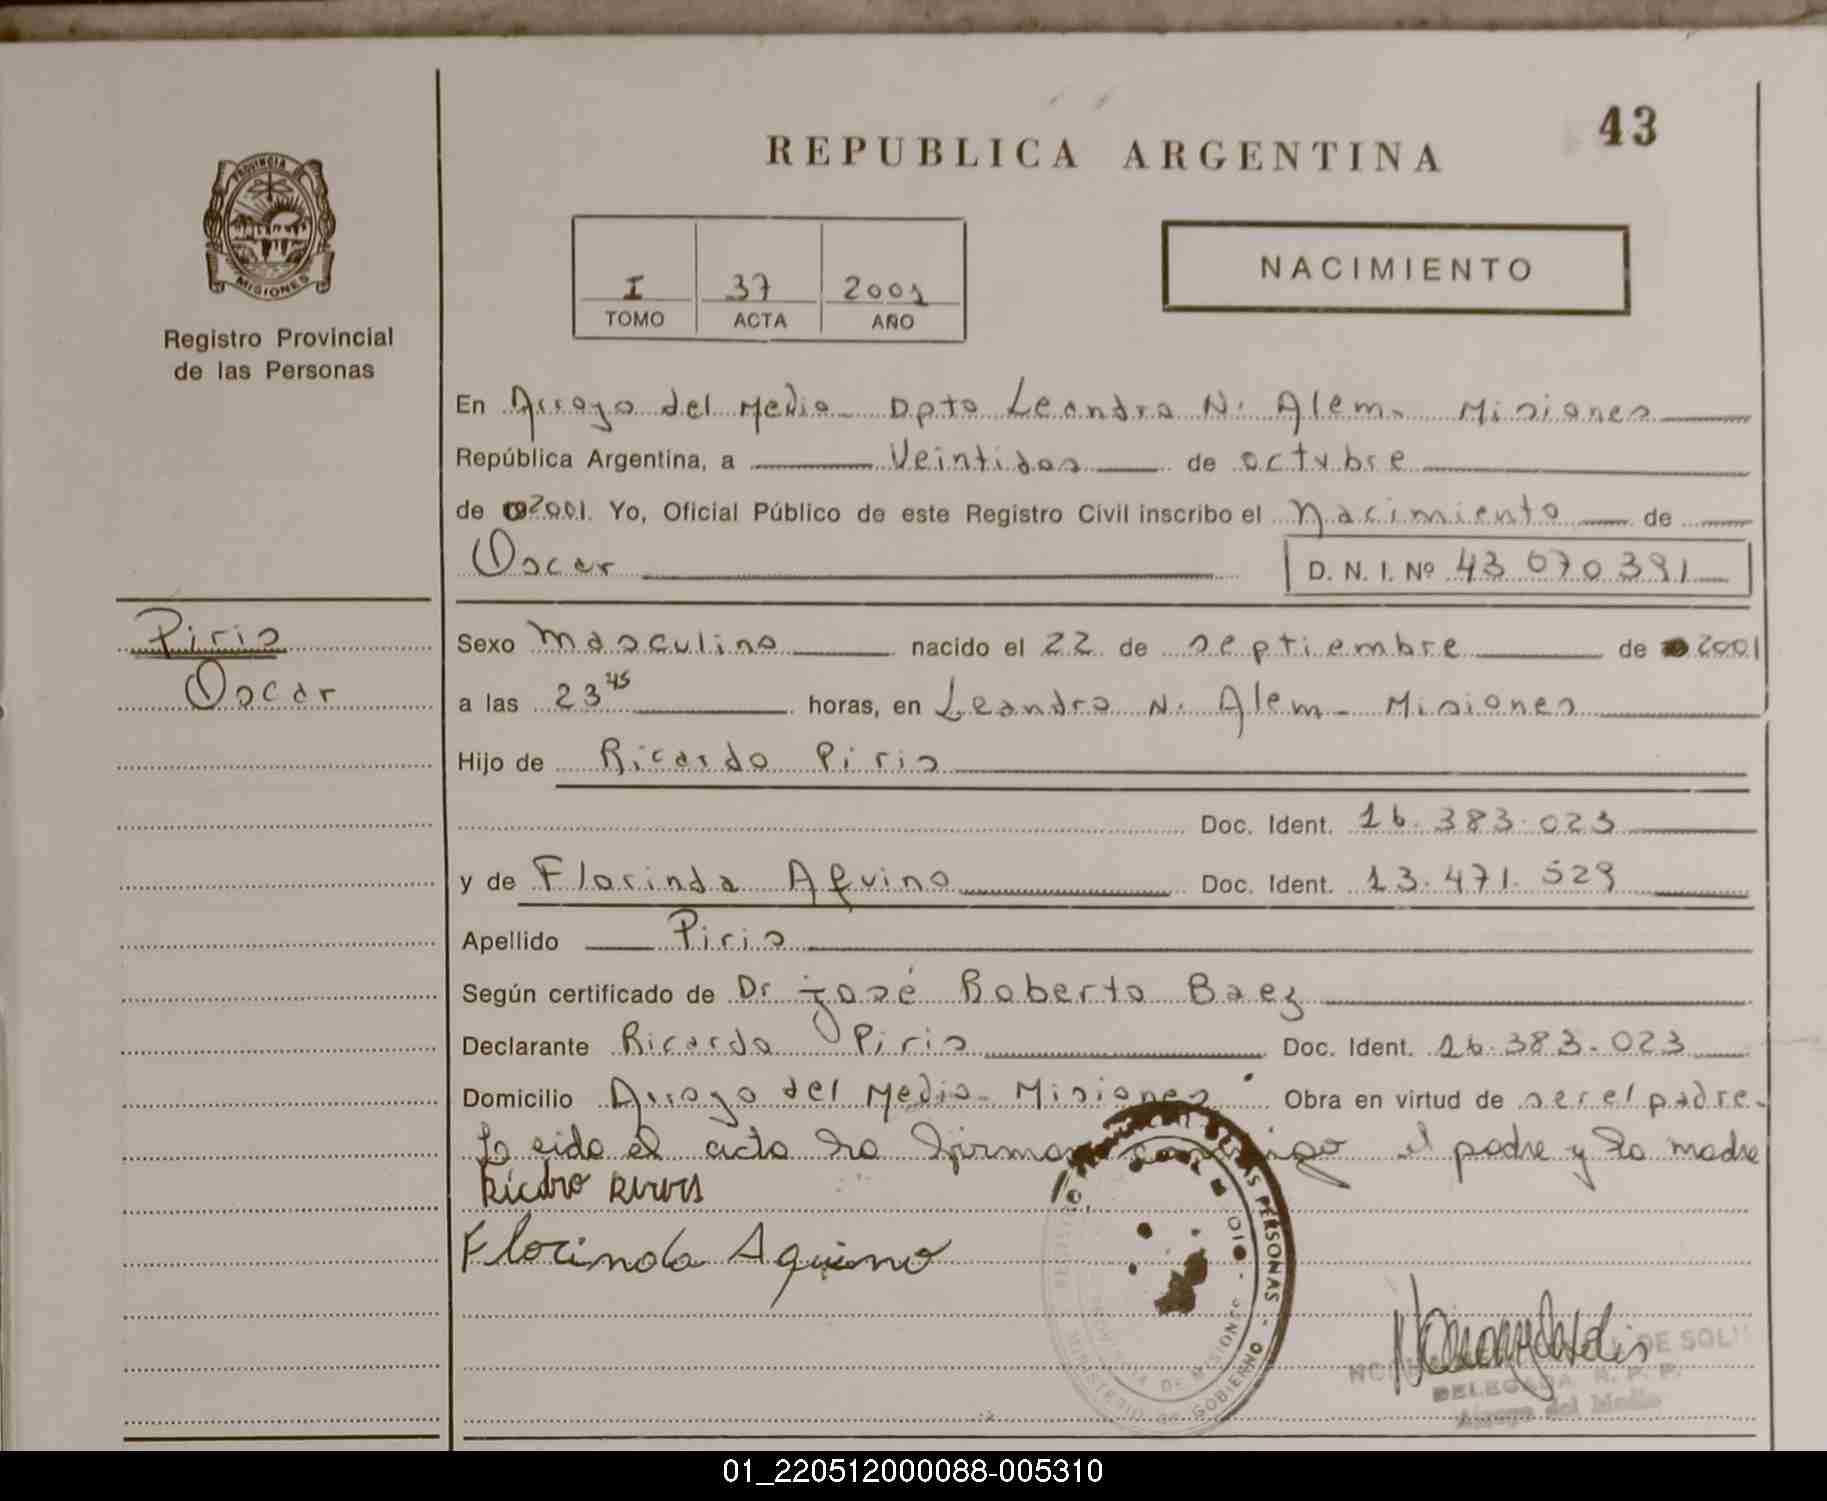 43
REPUBLICA ARGENTINA
PROVINCIA DE
MISIONES
Registro Provincial
de las Personas
I 37 2001
TOMO ACTA AÑO
NACIMIENTO
En Arroyo del Medio - Dpto Leandro N. Alem - Misiones
República Argentina, a Veintidos de octubre
de 2001. Yo, Oficial Público de este Registro Civil inscribo el Nacimiento de
Oscar D. N. I. Nº 43 070 391
Piris
Oscar
Sexo Masculino nacido el 22 de septiembre de 2001
a las 23 45 horas, en Leandro N. Alem - Misiones
Hijo de Ricardo Piris
Doc. Ident. 16.383.023
y de Florinda Aquino Doc. Ident. 13.471.529
Apellido Piris
Según certificado de Dr José Roberto Baez
Declarante Ricardo Piris Doc. Ident. 16.383.023
Domicilio Arroyo del Medio - Misiones Obra en virtud de ser el padre.
Leida el acta la firman conmigo el padre y la madre
Florinda Aquino
LAS PERSONAS
MINISTERIO DE GOBIERNO
DE MISIONES
DE
DELEGADA R. P. P.
Arroyo del Medio
01_220512000088-005310